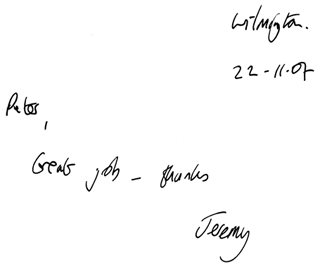 Wilmington.
22-11-07
Peter,
Great job - thanks
Jeremy